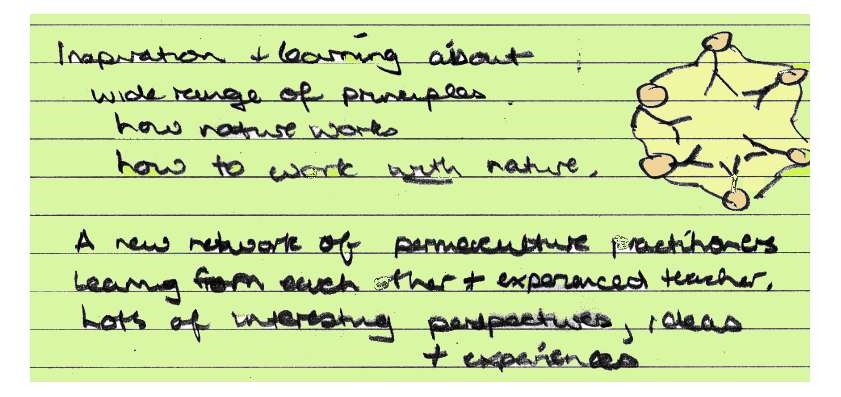 Inspiration + learning about
wide range of principles.
how nature works
how to work with nature.
A new network of permaculture practitioners
learning from each other + experienced teacher.
Lots of interesting perspectives, ideas
+ experiences